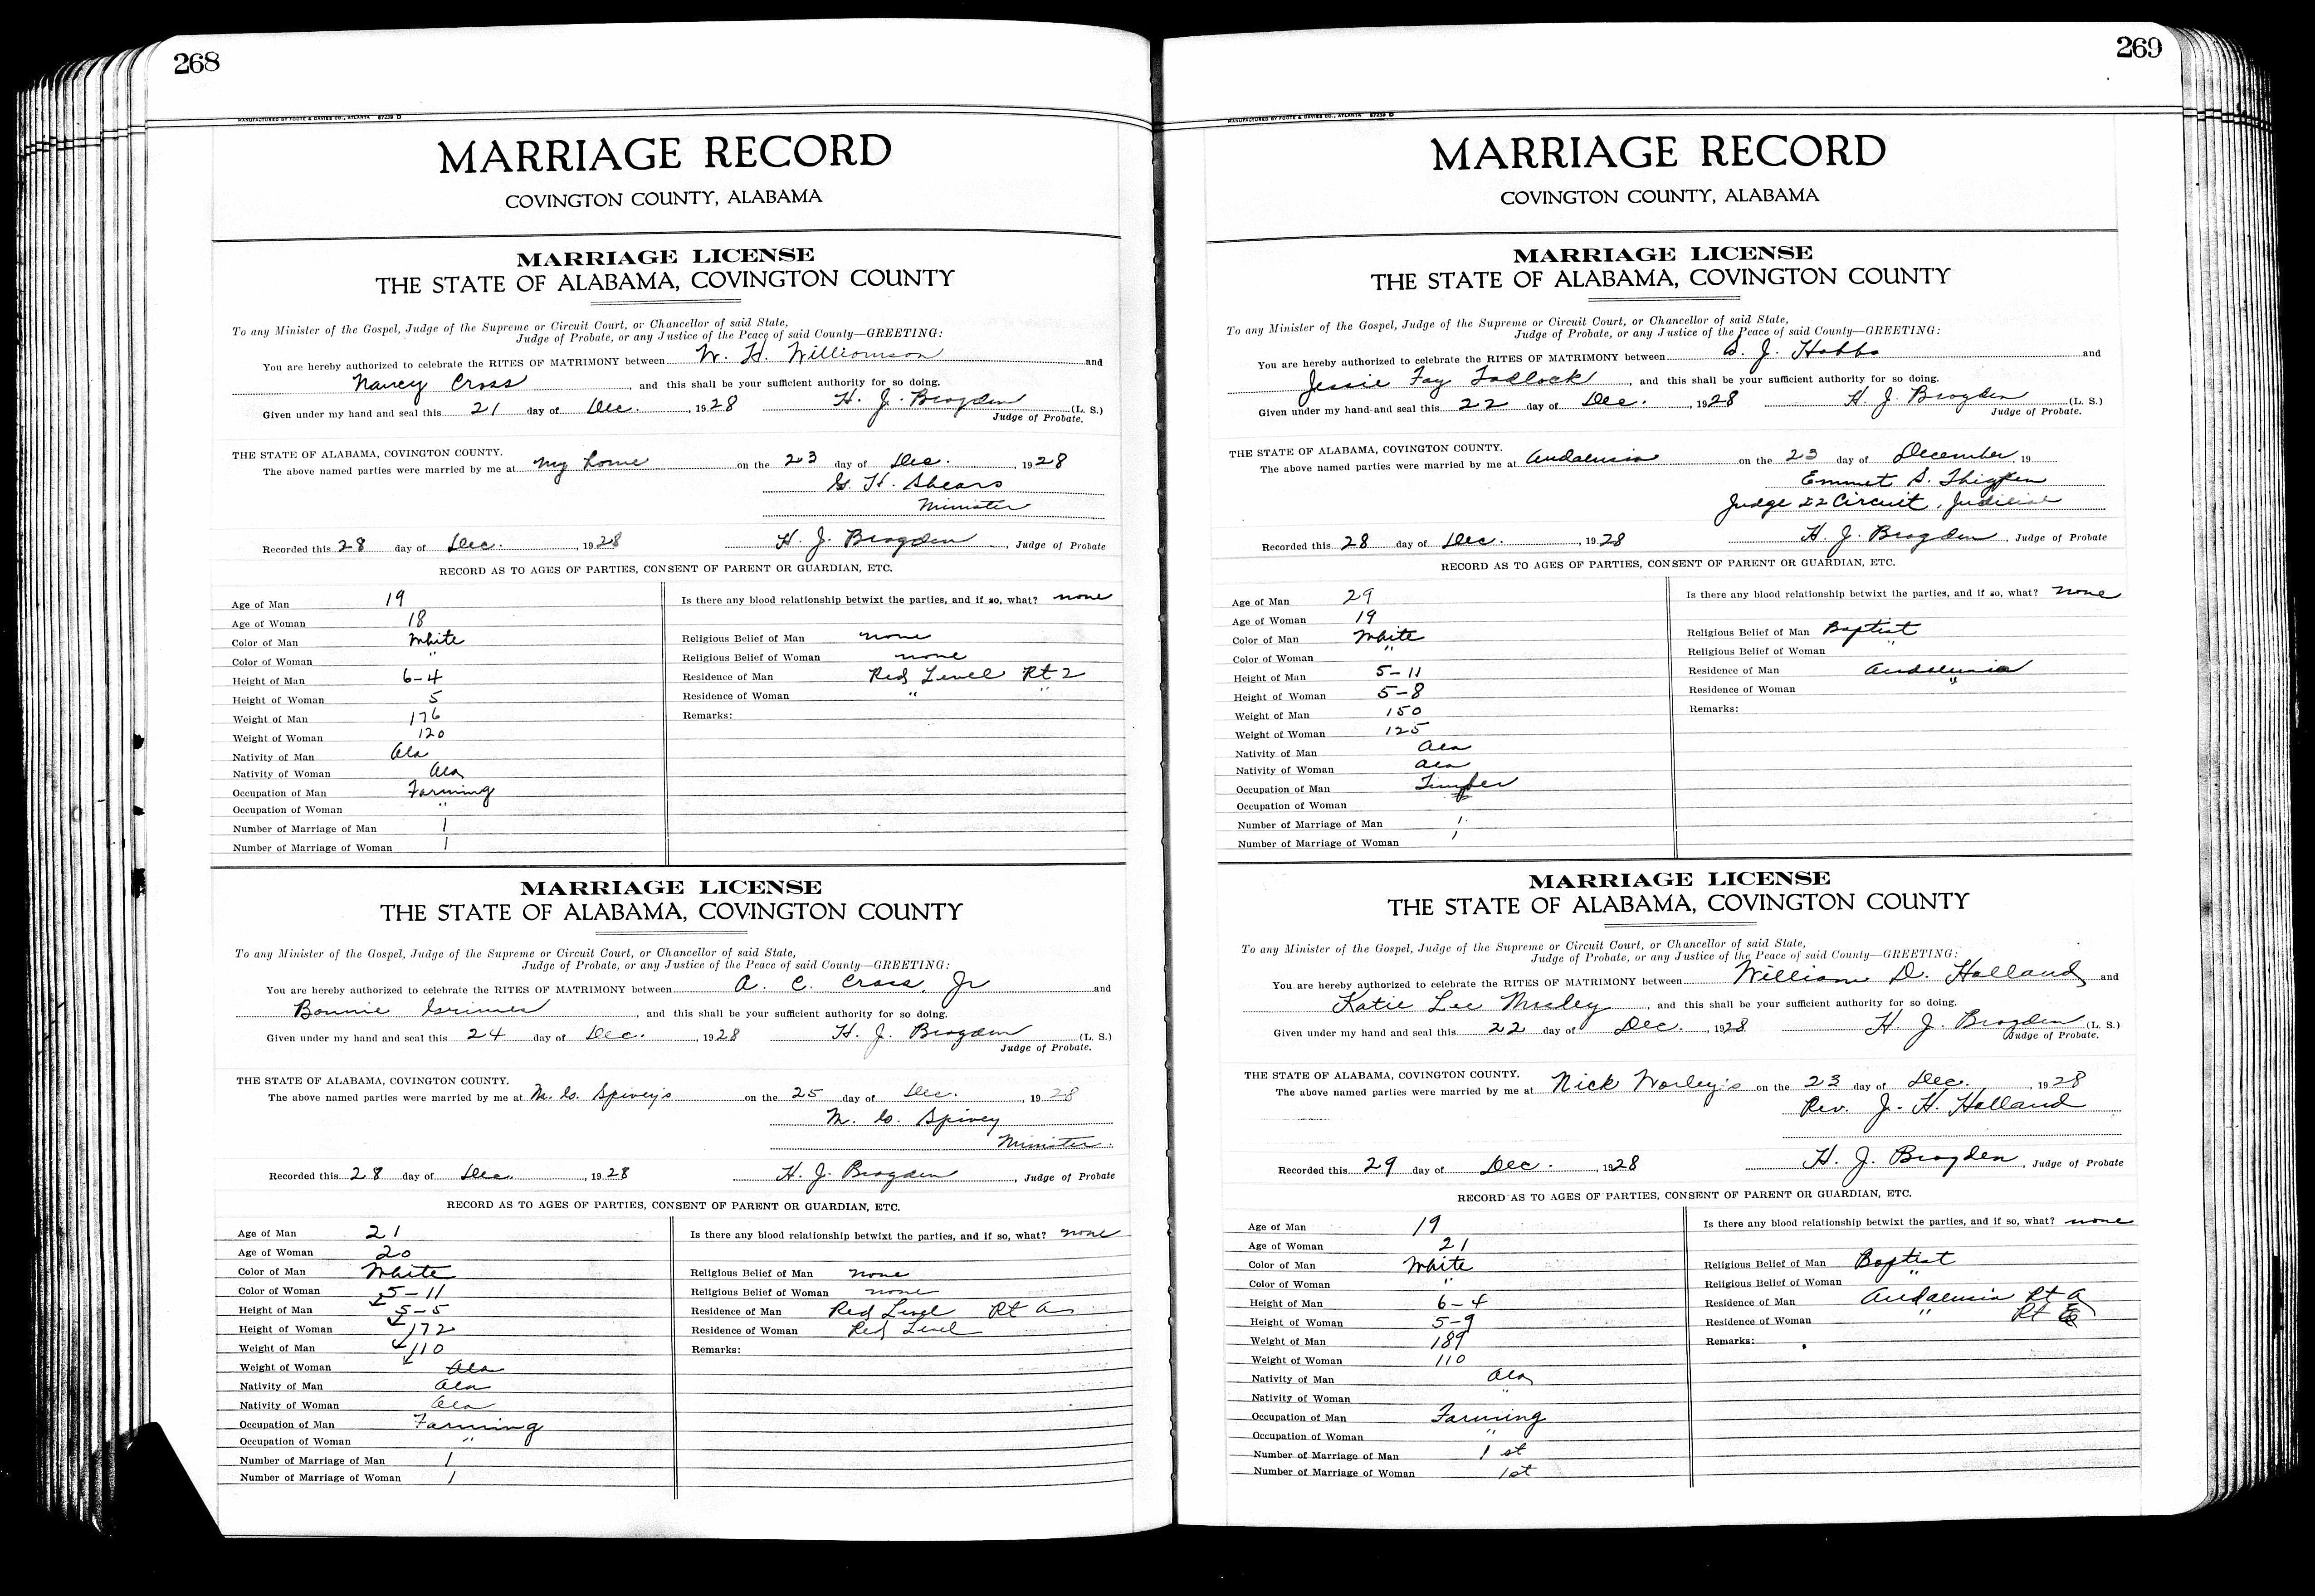 268
MANUFACTURED BY FOOTE & DAVIES CO., ATLANTA 67238 D
MARRIAGE RECORD
COVINGTON COUNTY, ALABAMA
MARRIAGE LICENSE
THE STATE OF ALABAMA, COVINGTON COUNTY
To any Minister of the Gospel, Judge of the Supreme or Circuit Court, or Chancellor of said State,
Judge of Probate, or any Justice of the Peace of said County—GREETING:
You are hereby authorized to celebrate the RITES OF MATRIMONY between W. H. Williamson and
Nancy Cross, and this shall be your sufficient authority for so doing.
Given under my hand and seal this 21 day of Dec., 1928 H. J. Brogden (L. S.)
Judge of Probate.
THE STATE OF ALABAMA, COVINGTON COUNTY.
The above named parties were married by me at my home on the 23 day of Dec., 1928
G. H. Shears
Minister
Recorded this 28 day of Dec., 1928 H. J. Brogden, Judge of Probate
RECORD AS TO AGES OF PARTIES, CONSENT OF PARENT OR GUARDIAN, ETC.
Age of Man 19
Age of Woman 18
Color of Man White
Color of Woman "
Height of Man 6-4
Height of Woman 5
Weight of Man 176
Weight of Woman 120
Nativity of Man Ala
Nativity of Woman Ala
Occupation of Man Farming
Occupation of Woman "
Number of Marriage of Man 1
Number of Marriage of Woman 1
Is there any blood relationship betwixt the parties, and if so, what? none
Religious Belief of Man none
Religious Belief of Woman none
Residence of Man Red Level Rt 2
Residence of Woman " "
Remarks:
MARRIAGE LICENSE
THE STATE OF ALABAMA, COVINGTON COUNTY
To any Minister of the Gospel, Judge of the Supreme or Circuit Court, or Chancellor of said State,
Judge of Probate, or any Justice of the Peace of said County—GREETING:
You are hereby authorized to celebrate the RITES OF MATRIMONY between A. C. Cross, Jr and
Bonnie Grimes, and this shall be your sufficient authority for so doing.
Given under my hand and seal this 24 day of Dec., 1928 H. J. Brogden (L. S.)
Judge of Probate.
THE STATE OF ALABAMA, COVINGTON COUNTY.
The above named parties were married by me at M. C. Spivey's on the 25 day of Dec., 1928
M. C. Spivey
Minister.
Recorded this 28 day of Dec., 1928 H. J. Brogden, Judge of Probate
RECORD AS TO AGES OF PARTIES, CONSENT OF PARENT OR GUARDIAN, ETC.
Age of Man 21
Age of Woman 20
Color of Man White
Color of Woman 5-11
Height of Man 5-5
Height of Woman 172
Weight of Man 110
Weight of Woman Ala
Nativity of Man Ala
Nativity of Woman Ala
Occupation of Man Farming
Occupation of Woman "
Number of Marriage of Man 1
Number of Marriage of Woman 1
Is there any blood relationship betwixt the parties, and if so, what? none
Religious Belief of Man none
Religious Belief of Woman none
Residence of Man Red Level Rt A
Residence of Woman Red Level
Remarks:
269
MANUFACTURED BY FOOTE & DAVIES CO., ATLANTA 67238 D
MARRIAGE RECORD
COVINGTON COUNTY, ALABAMA
MARRIAGE LICENSE
THE STATE OF ALABAMA, COVINGTON COUNTY
To any Minister of the Gospel, Judge of the Supreme or Circuit Court, or Chancellor of said State,
Judge of Probate, or any Justice of the Peace of said County—GREETING:
You are hereby authorized to celebrate the RITES OF MATRIMONY between J. Hobbs and
Jessie Fay Tadlock, and this shall be your sufficient authority for so doing.
Given under my hand and seal this 22 day of Dec., 1928 H. J. Brogden (L. S.)
Judge of Probate.
THE STATE OF ALABAMA, COVINGTON COUNTY.
The above named parties were married by me at Andalusia on the 23 day of December, 19
Emmet S. Thigpen
Judge 22 Circuit, Judicial
Recorded this 28 day of Dec., 1928 H. J. Brogden, Judge of Probate
RECORD AS TO AGES OF PARTIES, CONSENT OF PARENT OR GUARDIAN, ETC.
Age of Man 29
Age of Woman 19
Color of Man White
Color of Woman "
Height of Man 5-11
Height of Woman 5-8
Weight of Man 150
Weight of Woman 125
Nativity of Man Ala
Nativity of Woman Ala
Occupation of Man
Occupation of Woman
Number of Marriage of Man 1
Number of Marriage of Woman 1
Is there any blood relationship betwixt the parties, and if so, what? none
Religious Belief of Man Baptist
Religious Belief of Woman "
Residence of Man Andalusia
Residence of Woman "
Remarks:
MARRIAGE LICENSE
THE STATE OF ALABAMA, COVINGTON COUNTY
To any Minister of the Gospel, Judge of the Supreme or Circuit Court, or Chancellor of said State,
Judge of Probate, or any Justice of the Peace of said County—GREETING:
You are hereby authorized to celebrate the RITES OF MATRIMONY between William D. Holland and
Katie Lee Mosley, and this shall be your sufficient authority for so doing.
Given under my hand and seal this 22 day of Dec., 1928 H. J. Brogden (L. S.)
Judge of Probate.
THE STATE OF ALABAMA, COVINGTON COUNTY.
The above named parties were married by me at Nick Worley's on the 23 day of Dec., 1928
Rev. J. H. Holland
Recorded this 29 day of Dec., 1928 H. J. Brogden, Judge of Probate
RECORD AS TO AGES OF PARTIES, CONSENT OF PARENT OR GUARDIAN, ETC.
Age of Man 19
Age of Woman 21
Color of Man White
Color of Woman "
Height of Man 6-4
Height of Woman 5-9
Weight of Man 189
Weight of Woman 110
Nativity of Man Ala
Nativity of Woman "
Occupation of Man Farming
Occupation of Woman "
Number of Marriage of Man 1st
Number of Marriage of Woman 1st
Is there any blood relationship betwixt the parties, and if so, what? none
Religious Belief of Man Baptist
Religious Belief of Woman "
Residence of Man Andalusia Rt A
Residence of Woman " Rt E
Remarks: